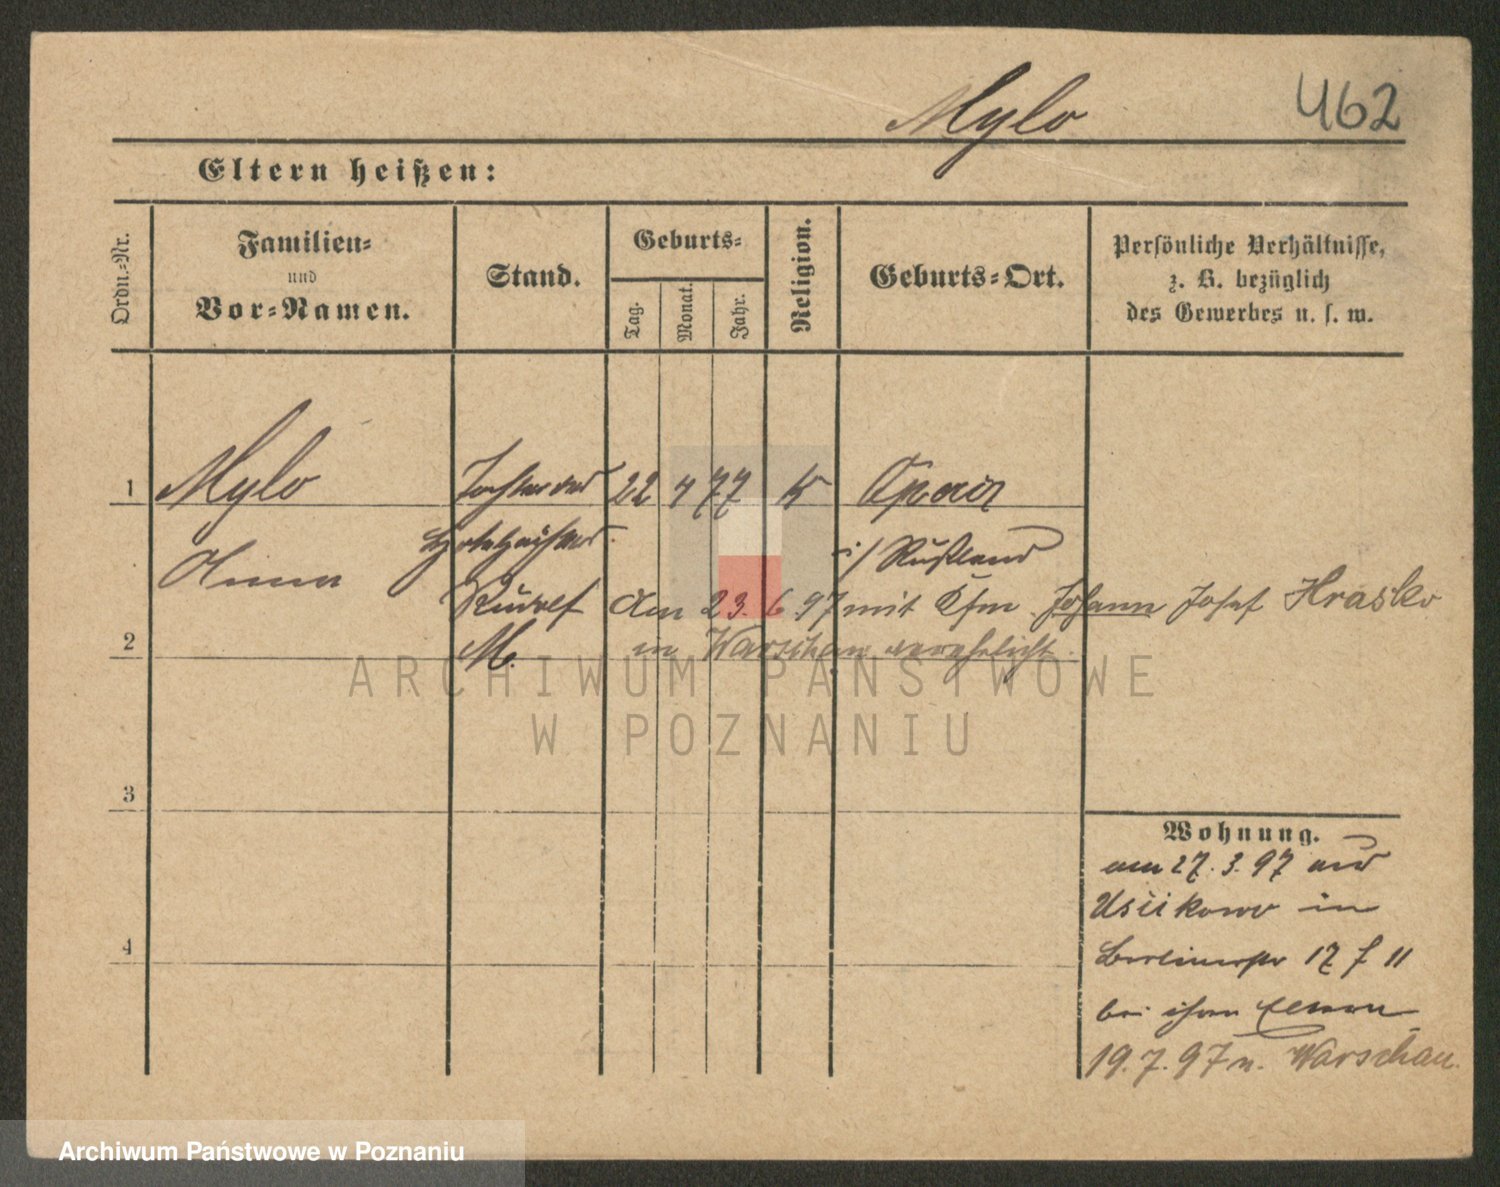 Mylo 462
Eltern heißen:
Ordn.-Nr.
Familien-
und
Vor-Namen.
Stand.
Geburts-
Tag.
Monat.
Jahr.
Religion.
Geburts-Ort.
Persönliche Verhältnisse,
z. B. bezüglich
des Gewerbes u. s. w.
1 Mylo Tochter des 22 4 77 K
Anna i/ Rußland
Rudolf Am 23. 6 97 mit Kfm. Johann Josef Hrasko
2 M. in Warschau verehelicht.
3
4
Wohnung.
am 27. 3. 97 aus
in
Berlinerstr 17 f 11
bei ihren Eltern
19. 7. 97 n. Warschau.
ARCHIWUM PAŃSTWOWE
W POZNANIU
Archiwum Państwowe w Poznaniu